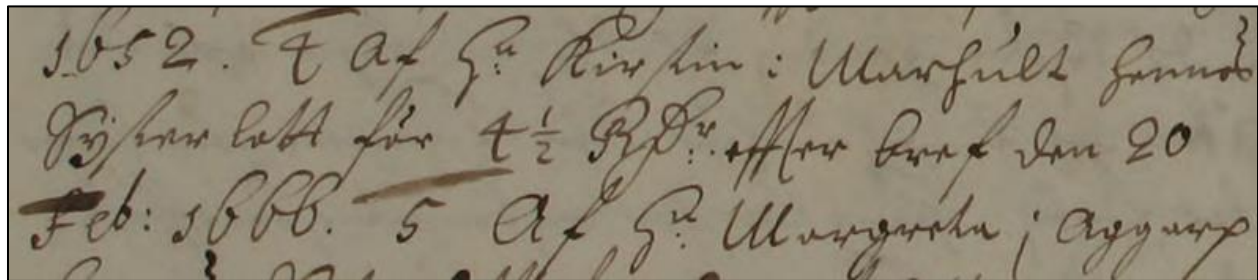 1652. 4 Af H:a Kirstin i Marhult hennes
Syster lott för 4 1/2 RDr. effter bref den 20
Feb: 1666. 5 Af H:a Margreta i Aggarp